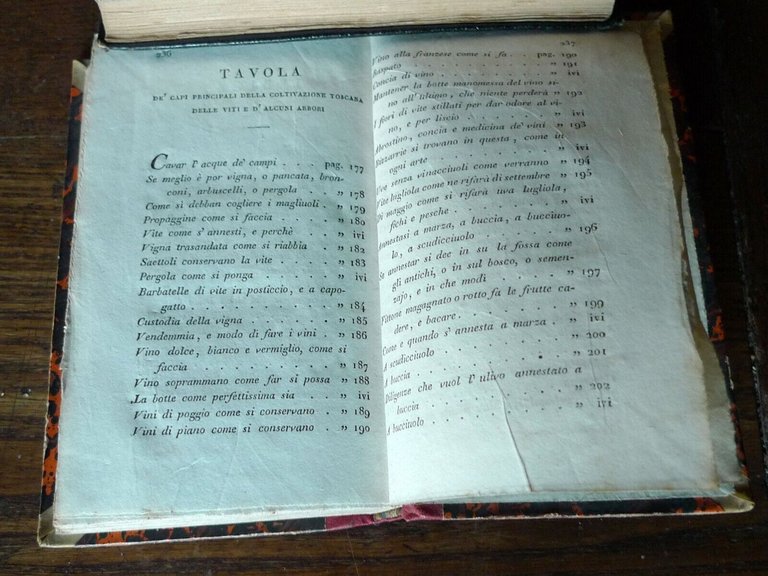 236
TAVOLA
DE' CAPI PRINCIPALI DELLA COLTIVAZIONE TOSCANA
DELLE VITI E D' ALCUNI ARBORI
Cavar l' acque de' campi . . . . pag. 177
Se meglio è por vigna, o pancata, bron-
coni, arbuscelli, o pergola . . . . „ 178
Come si debban cogliere i magliuoli . „ 179
Propaggine come si faccia . . . . „ 180
Vite come s' annesti, e perchè . . . „ ivi
Vigna trasandata come si riabbia . . „ 182
Saettoli conservano la vite . . . . „ 183
Pergola come si ponga . . . . . „ ivi
Barbatelle di vite in posticcio, e a capo-
gatto . . . . . . . . . „ 184
Custodia della vigna . . . . . . „ 185
Vendemmia, e modo di fare i vini . . „ 186
Vino dolce, bianco e vermiglio, come si
faccia . . . . . . . . . „ 187
Vino soprammano come far si possa „ 188
La botte come perfettissima sia . . . „ ivi
Vini di poggio come si conservano . . „ 189
Vini di piano come si conservano . . „ 190
237
Vino alla franzese come si fa . . pag. 190
Raspato . . . . . . . . . „ 191
Concia di vino . . . . . . . „ ivi
Mantener la botte manomessa del vino si-
no all' ultimo, che niente perderà „ 192
I fiori di vite stillati per dar odore al vi-
no, e per liscio . . . . . . „ ivi
Abrostino, concia e medicina de' vini „ 193
Bizzarrie si trovano in questa, come in
ogni arte . . . . . . . . „ ivi
Uve senza vinacciuoli come verranno „ 194
Vite lugliola come ne rifarà di settembre „ 195
Di maggio come si rifarà uva lugliola,
fichi e pesche . . . . . . . „ ivi
Annestasi a marza, a buccia, a bucciuo-
lo, a scudicciuolo . . . . . . „ 196
Se annestar si dee in su la fossa come
gli antichi, o in sul bosco, o semen-
zajo, e in che modi . . . . . „ 197
Vittone magagnato o rotto fà le frutte ca-
dere, e bacare . . . . . . . „ 199
Come e quando s' annesta a marza . „ ivi
A scudicciuolo . . . . . . . „ 200
A buccia . . . . . . . . . „ 201
Diligenze che vuol l' ulivo annestato a
buccia . . . . . . . . . „ 202
A bucciuolo . . . . . . . . „ ivi